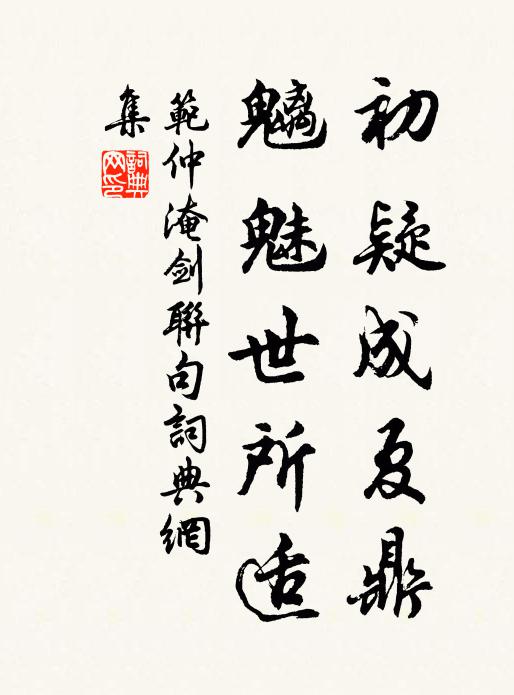 初疑成夏鼎
魑魅世所适
範仲淹劍聯句詞典網
集
詞典
网印